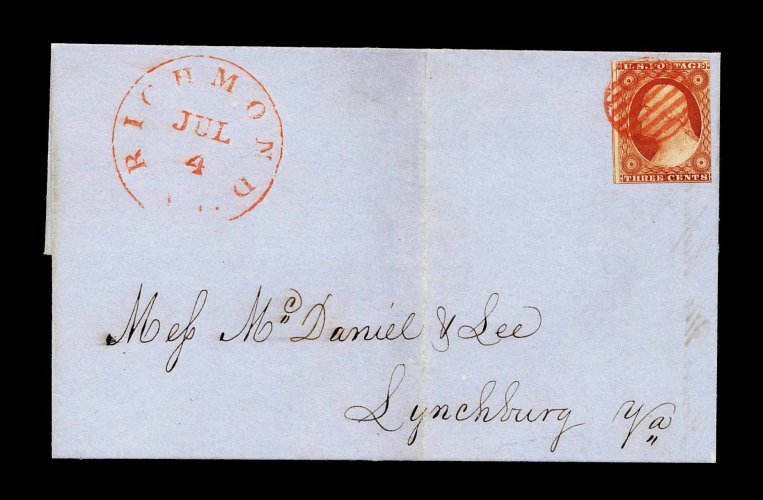 RICHMOND
JUL
4
U.S. POSTAGE
THREE CENTS
Meſs McDaniel & Lee
Lynchburg Va